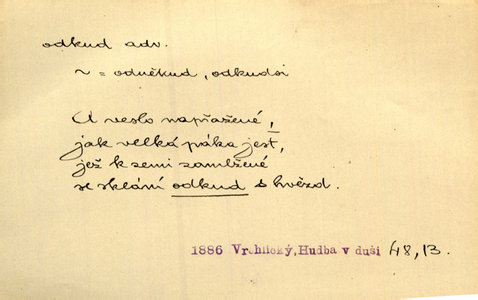 odkud adv.
~ = odněkud, odkudsi
U veslo napřažené,
jak velká páka jest,
jež k zemi zamlžené
se sklání odkud s hvězd.
1886 Vrchlický, Hudba v duši 48, 13.